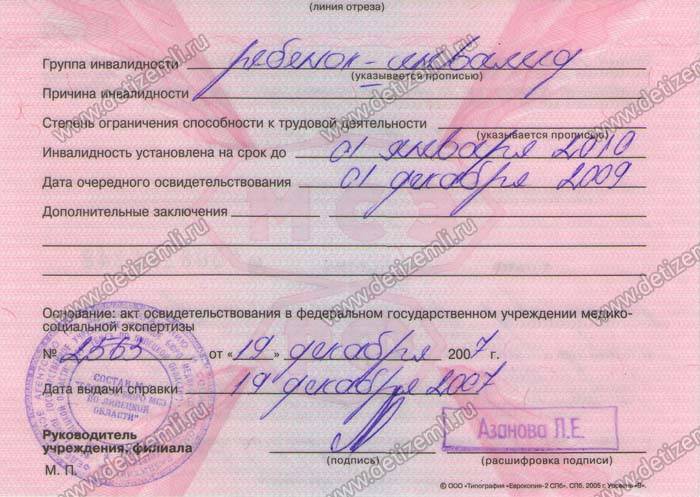 (линия отреза)
Группа инвалидности ребенок-инвалид
(указывается прописью)
Причина инвалидности
Степень ограничения способности к трудовой деятельности
(указывается прописью)
Инвалидность установлена на срок до 01 января 2010
Дата очередного освидетельствования 01 декабря 2009
Дополнительные заключения
МСЭ
Основание: акт освидетельствования в федеральном государственном учреждении медико-
социальной экспертизы
№ 2563 от «19» декабря 2007 г.
Дата выдачи справки 19 декабря 2007
СОСТАВ №
МСЭ
ПО ЛИПЕЦКОЙ
ОБЛАСТИ"
Руководитель
учреждения, филиала
Азанова Л.Е.
(подпись) (расшифровка подписи)
М. П.
© ООО «Типография «Еврокопия-2 СПб». СПб. 2005 г. Уровень «В».
www.detizemli.ru